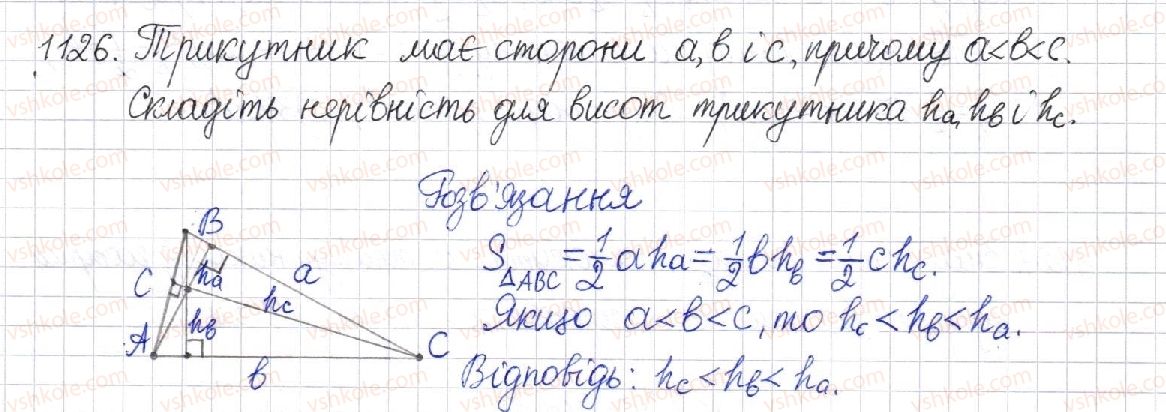 1126. Трикутник має сторони a, b і c, причому a<b<c.
Складіть нерівність для висот трикутника ha, hb і hc.
Розв'язання
B
C
ha
a
hc
hb
A
C
b
S△ABC = 1/2 aha = 1/2 bhb = 1/2 chc.
Якщо a<b<c, то hc<hb<ha.
Відповідь: hc<hb<ha.
vshkole.com